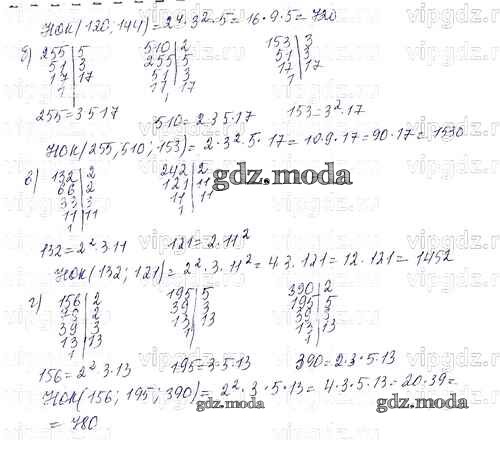 НОК(120; 144) = 2⁴·3²·5 = 16·9·5 = 720
б) 255|5 510|2 153|3
51|3 255|5 51|3
17|17 51|3 17|17
1| 17|17 1|
1
255 = 3·5·17 510 = 2·3·5·17 153 = 3²·17
НОК(255, 510; 153) = 2·3²·5·17 = 10·9·17 = 90·17 = 1530
в) 132|2 242|2
66|2 121|11
33|3 11|11
11|11 1|
1|
gdz.moda
132 = 2²·3·11 121 = 2·11²
НОК(132; 121) = 2²·3·11² = 4·3·121 = 12·121 = 1452
г) 156|2 195|5 390|2
78|2 39|3 195|5
39|3 13|13 39|3
13|13 1| 13|13
1| 1|
156 = 2²·3·13 195 = 3·5·13 390 = 2·3·5·13
НОК(156; 195; 390) = 2²·3·5·13 = 4·3·5·13 = 20·39 =
= 780
gdz.moda
gdz.moda
vipgdz.com